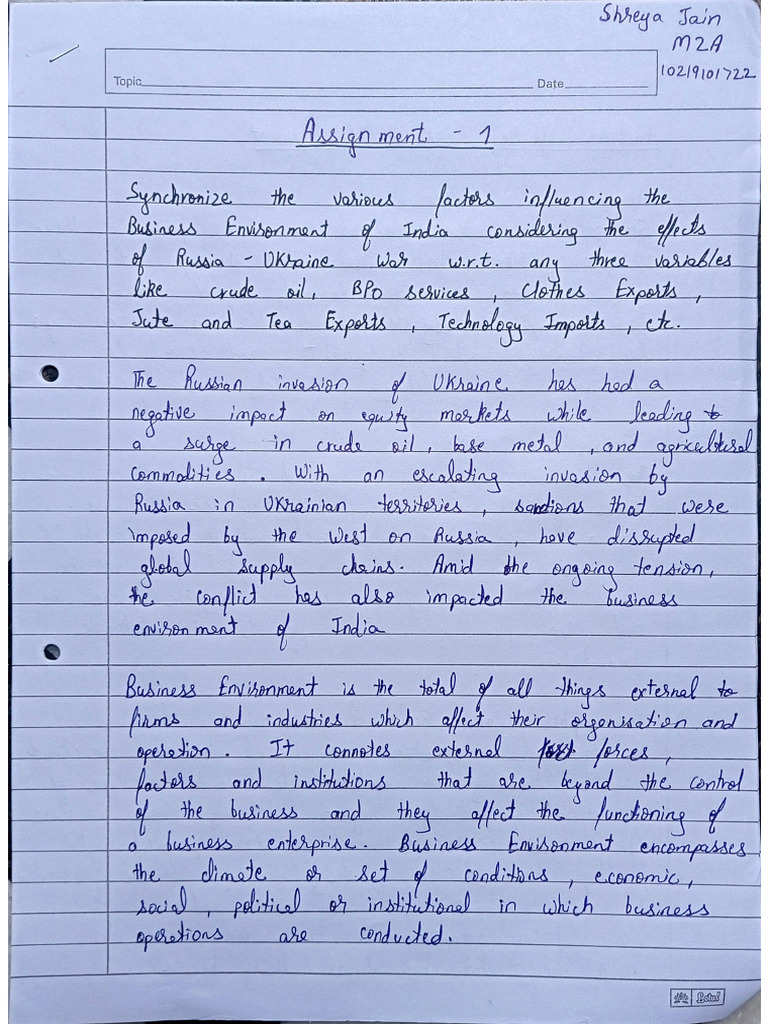 Shreya Jain
M2A
10219101722
Topic Date
Assignment - 1
Synchronize the various factors influencing the
Business Environment of India considering the effects
of Russia - Ukraine War w.r.t. any three variables
like crude oil, BPO services, Clothes Exports,
Jute and Tea Exports, Technology Imports, etc.
The Russian invasion of Ukraine has had a
negative impact on equity markets while leading to
a surge in crude oil, base metal, and agricultural
commodities. With an escalating invasion by
Russia in Ukrainian territories, sanctions that were
imposed by the West on Russia, have disrupted
global supply chains. Amid the ongoing tension,
the conflict has also impacted the business
environment of India
Business Environment is the total of all things external to
firms and industries which affect their organisation and
operation. It connotes external forces,
factors and institutions that are beyond the control
of the business and they affect the functioning of
a business enterprise. Business Environment encompasses
the climate or set of conditions, economic,
social, political or institutional in which business
operations are conducted.
Lotus